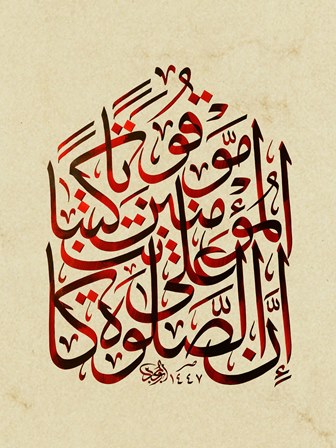 إِنَّ الصَّلَوٰةَ كَانَتْ
عَلَى الْمُؤْمِنِينَ كِتَٰبًا
مَّوْقُوتًا
١٤٤٧